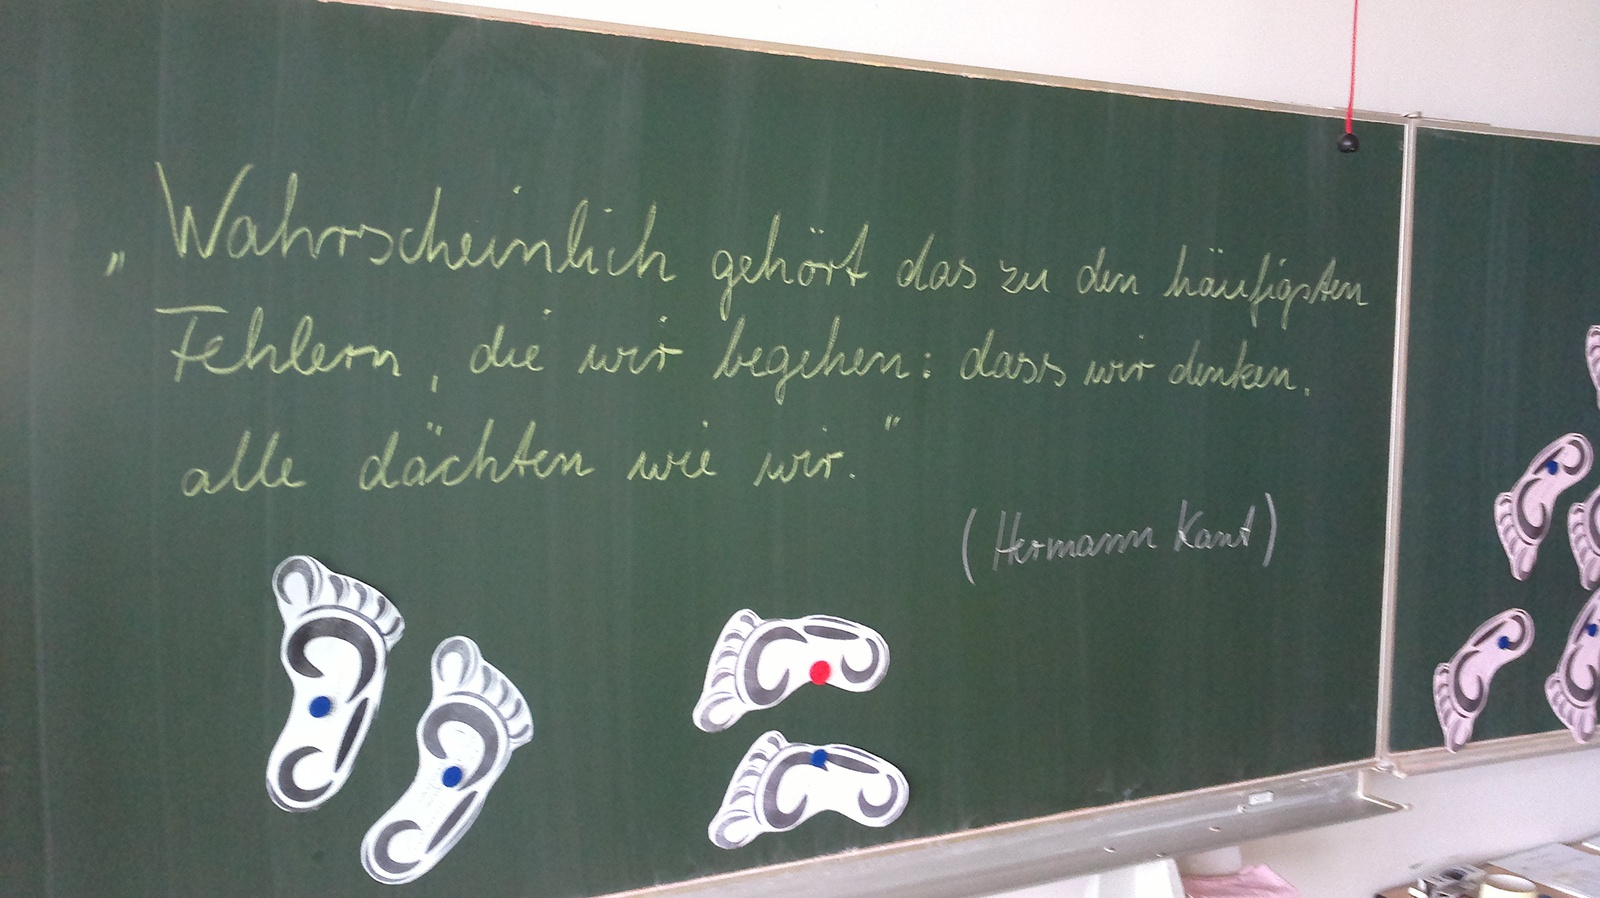 „Wahrscheinlich gehört das zu den häufigsten
Fehlern, die wir begehen: dass wir denken,
alle dächten wie wir."
(Hermann Kant)